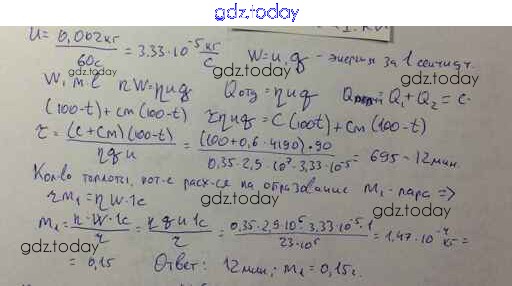 gdz.today
u = 0,002кг/60с = 3.33·10⁻⁵ кг/с W=u·q - энергия за 1 секунду.
W, m·c ηW=ηuq Qотд = ηuq Q Q₁+Q₂ = c·
(100-t)+cm(100-t) τηuq = C(100-t)+cm(100-t)
τ = (C+cm)(100-t)/ηqu = (100+0,6·4190)·90/0,35·2,9·10⁷·3,33·10⁻⁵ = 695 - 12 мин.
Кол-во теплоты, кот-е расх-ся на образование m₁-пара =>
rm₁ = ηW·1c
m₁ = η·W·1c/r = ηqu1c/r = 0,35·2,9·10⁷·3,33·10⁻⁵·1/23·10⁵ = 1,47·10⁻⁴ кг =
= 0,15 Ответ: 12 мин; m₁=0,15г.
gdz.today
gdz.today
gdz.today
gdz.today
gdz.today
gdz.today
gdz.today
gdz.today